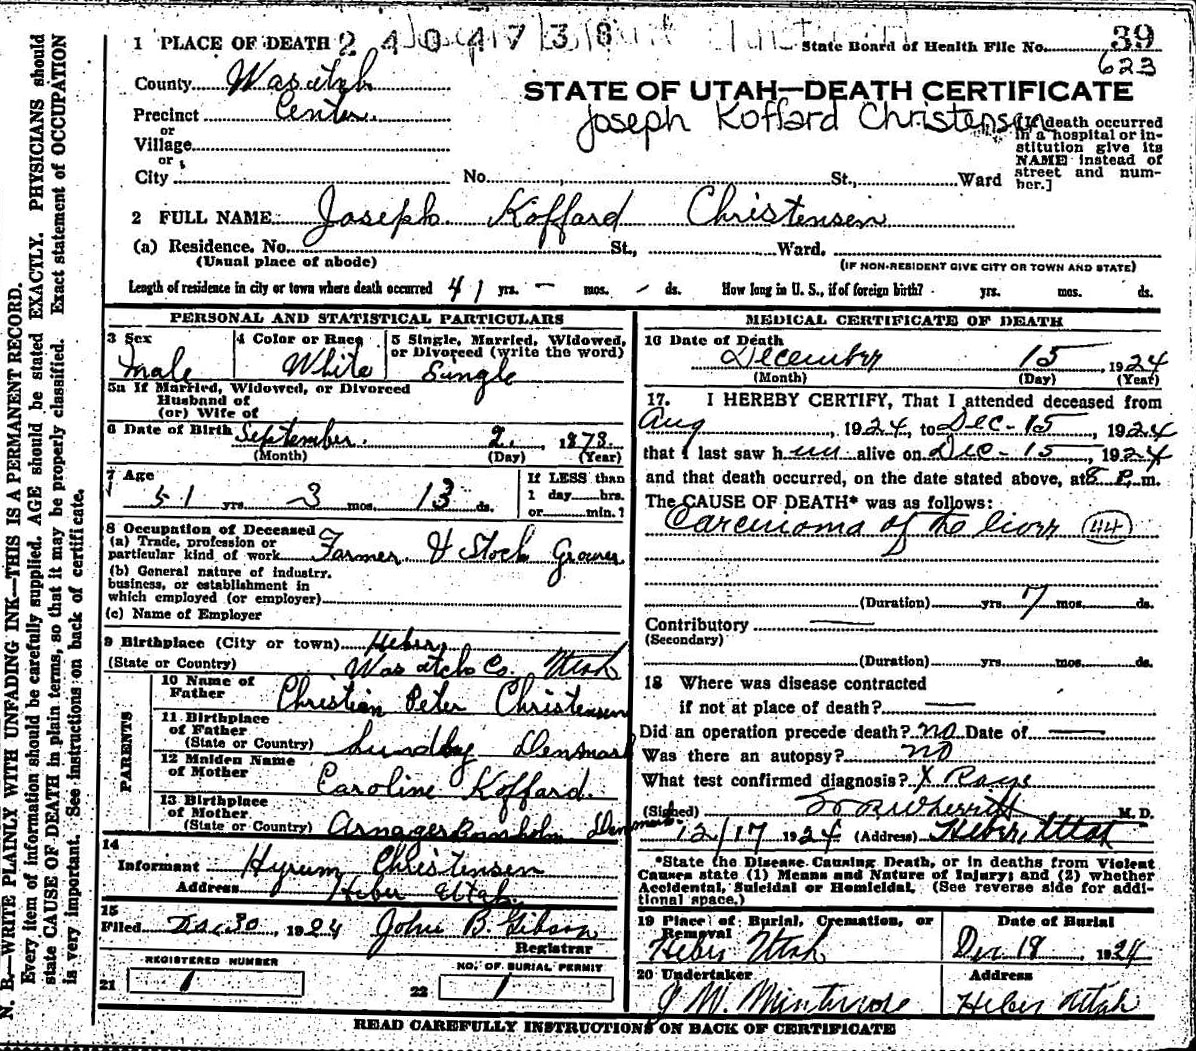 2404738
State Board of Health File No. 39
623
1 PLACE OF DEATH
County Wasatch
STATE OF UTAH—DEATH CERTIFICATE
Precinct Center
Joseph Koffard Christensen
or
Village
or
City No. St., Ward
[If death occurred
in a hospital or in-
stitution give its
NAME instead of
street and num-
ber.]
2 FULL NAME Joseph Koffard Christensen
(a) Residence. No. St., Ward.
(Usual place of abode)
(IF NON-RESIDENT GIVE CITY OR TOWN AND STATE)
Length of residence in city or town where death occurred 41 yrs. — mos. — ds. How long in U. S., if of foreign birth? yrs. mos. ds.
PERSONAL AND STATISTICAL PARTICULARS
3 Sex
Male
4 Color or Race
White
5 Single, Married, Widowed,
or Divorced (write the word)
Single
5a If Married, Widowed, or Divorced
Husband of
(or) Wife of
6 Date of Birth September 2, 1873.
(Month) (Day) (Year)
7 Age
51 yrs. 3 mos. 13 ds.
If LESS than
1 day hrs.
or min.?
8 Occupation of Deceased
(a) Trade, profession or
particular kind of work Farmer & Stock Grower
(b) General nature of industry,
business, or establishment in
which employed (or employer)
(c) Name of Employer
9 Birthplace (City or town) Heber,
(State or Country) Wasatch Co. Utah
PARENTS
10 Name of
Father Christian Peter Christensen
11 Birthplace
of Father
(State or Country) Lundby Denmark
12 Maiden Name
of Mother Caroline Koffard.
13 Birthplace
of Mother
(State or Country) Arnager Bornholm Denmark
14
Informant Hyrum Christensen
Address Heber Utah.
15
Filed Dec. 30, 1924 John B. Gibson
Registrar
REGISTERED NUMBER
21 1
NO. OF BURIAL PERMIT
22 1
MEDICAL CERTIFICATE OF DEATH
16 Date of Death
December 15 1924
(Month) (Day) (Year)
17. I HEREBY CERTIFY, That I attended deceased from
Aug, 1924, to Dec-15, 1924
that I last saw him alive on Dec-15, 1924
and that death occurred, on the date stated above, at 8 P. m.
The CAUSE OF DEATH* was as follows:
Carcinoma of the liver 44
(Duration) yrs. 7 mos. ds.
Contributory —
(Secondary)
(Duration) yrs. mos. ds.
18 Where was disease contracted
if not at place of death? —
Did an operation precede death? no Date of —
Was there an autopsy? no
What test confirmed diagnosis? X Rays
(Signed) Wherritt M. D.
12/17 1924 (Address) Heber, Utah
*State the Disease Causing Death, or in deaths from Violent
Causes state (1) Means and Nature of Injury; and (2) whether
Accidental, Suicidal or Homicidal. (See reverse side for addi-
tional space.)
19 Place of Burial, Cremation, or
Removal
Heber Utah
Date of Burial
Dec. 18 1924
20 Undertaker
Address
Heber Utah
READ CAREFULLY INSTRUCTIONS ON BACK OF CERTIFICATE
N. B.—WRITE PLAINLY WITH UNFADING INK—THIS IS A PERMANENT RECORD.
Every item of information should be carefully supplied. AGE should be stated EXACTLY. PHYSICIANS should
state CAUSE OF DEATH in plain terms, so that it may be properly classified. Exact statement of OCCUPATION
is very important. See instructions on back of certificate.